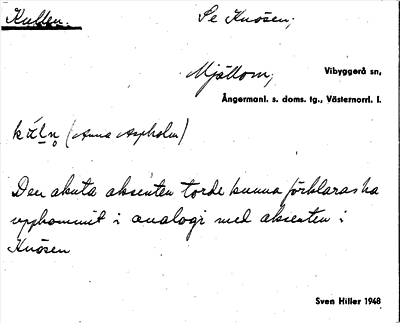 Kullen.
Se Knösen,
Mjällom,
Vibyggerå sn,
Ångermanl. s. doms. tg., Västernorrl. l.
(Anna Aspholm)
Den akuta aksenten torde kunna förklaras ha
uppkommit i analogi med aksenten i
Knösen
Sven Hiller 1948